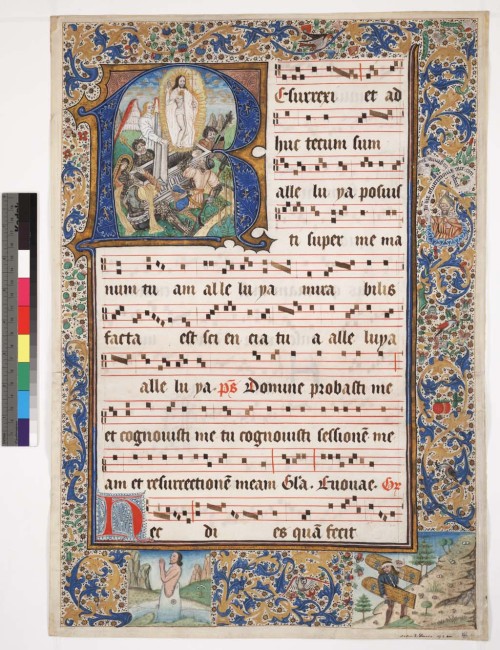 Resurrexi et ad
huc tecum sum
alle lu ya posuis
ti super me ma
num tu am alle lu ya mira bilis
facta est sci en cia tu a alle luya
alle lu ya. ps Domine probasti me
et cognovisti me tu cognovisti sessionē me
am et resurrectionē meam Gla. Euouae. Gr
Hec di es quā fecit
Kodak